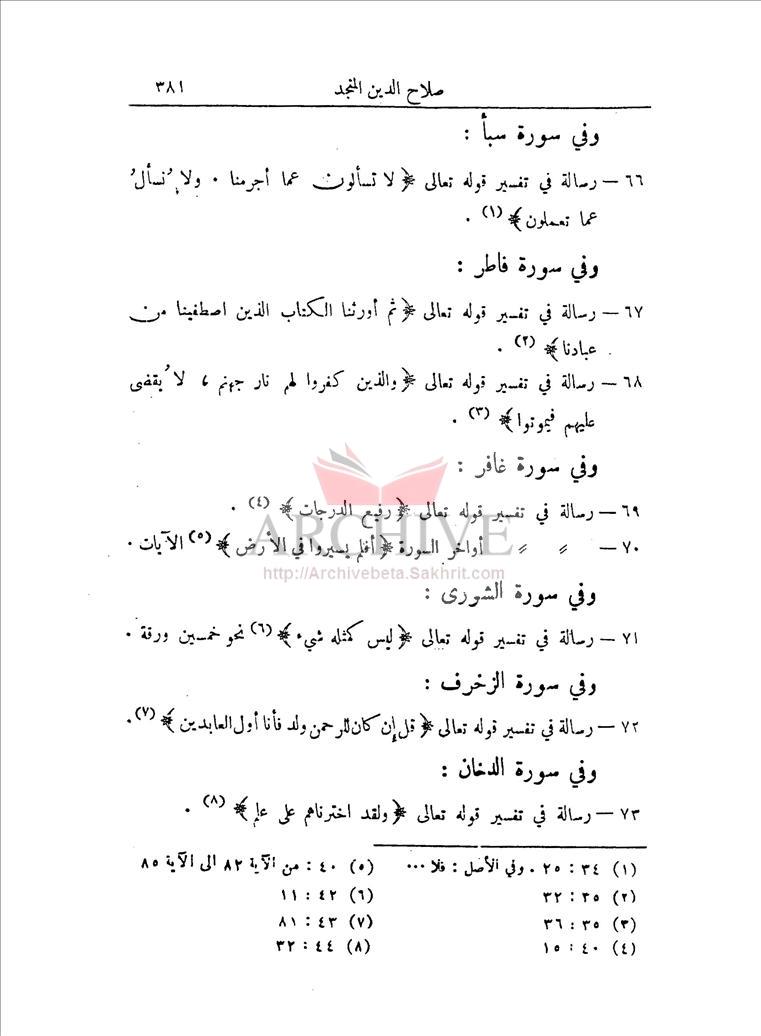 صلاح الدين المنجد ٣٨١
وفي سورة سبأ :
٦٦ — رسالة في تفسير قوله تعالى ﴿ لا تسألون عما أجرمنا . ولا نُسأل
عما تعملون ﴾ (١) .
وفي سورة فاطر :
٦٧ — رسالة في تفسير قوله تعالى ﴿ ثم أورثنا الكتاب الذين اصطفينا من
عبادنا ﴾ (٢) .
٦٨ — رسالة في تفسير قوله تعالى ﴿ والذين كفروا لهم نار جهنم ، لا يُقضى
عليهم فيموتوا ﴾ (٣) .
وفي سورة غافر :
٦٩ — رسالة في تفسير قوله تعالى ﴿ رفيع الدرجات ﴾ (٤) .
ARCHIVE
٧٠ — » » أواخر السورة ﴿ أفلم يسيروا في الأرض ﴾ (٥) الآيات .
http://Archivebeta.Sakhrit.com
وفي سورة الشورى :
٧١ — رسالة في تفسير قوله تعالى ﴿ ليس كمثله شيء ﴾ (٦) نحو خمسين ورقة .
وفي سورة الزخرف :
٧٢ — رسالة في تفسير قوله تعالى ﴿ قل إن كان للرحمن ولد فأنا أول العابدين ﴾ (٧) .
وفي سورة الدخان :
٧٣ — رسالة في تفسير قوله تعالى ﴿ ولقد اخترناهم على علم ﴾ (٨) .
(١) ٣٤ : ٢٥ . وفي الأصل : فلا ...
(٢) ٣٥ : ٣٢
(٣) ٣٥ : ٣٦
(٤) ٤٠ : ١٥
(٥) ٤٠ : من الآية ٨٢ الى الآية ٨٥
(٦) ٤٢ : ١١
(٧) ٤٣ : ٨١
(٨) ٤٤ : ٣٢